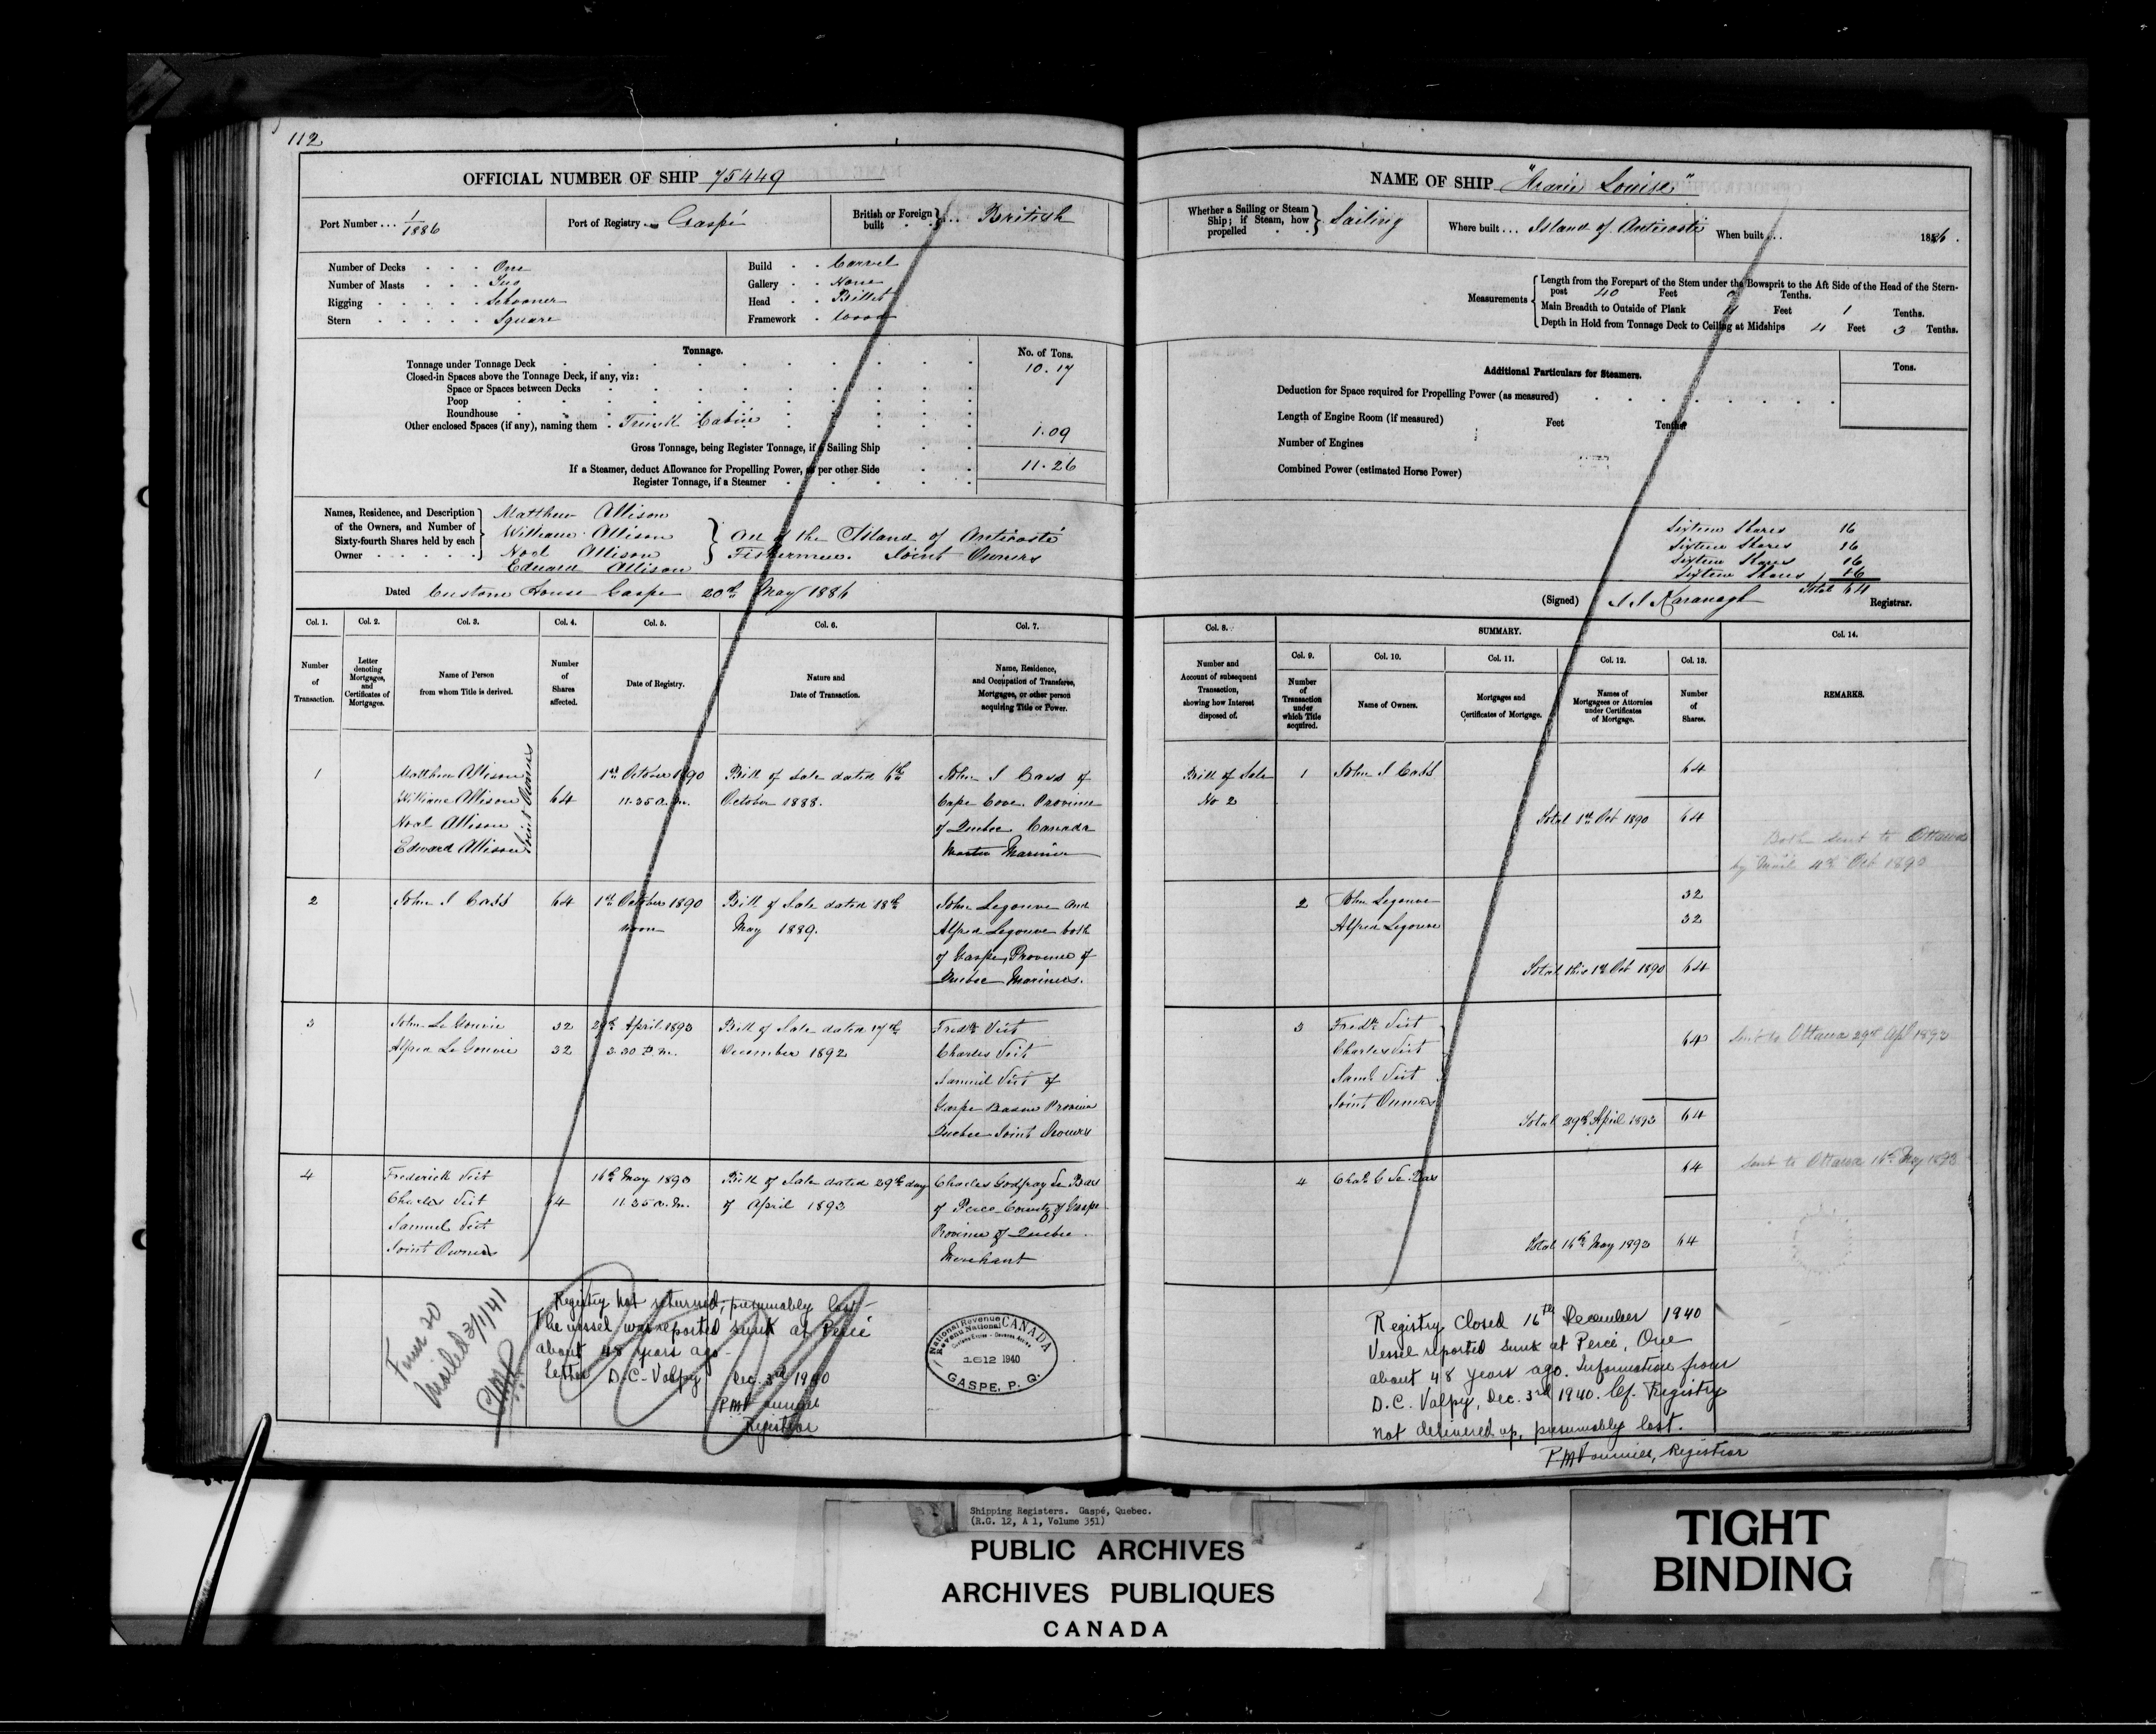 112
OFFICIAL NUMBER OF SHIP 75449
Port Number ... 1/1886
Port of Registry Gaspé
British or Foreign built ... British
Number of Decks One
Number of Masts Two
Rigging Schooner
Stern Square
Build Carvel
Gallery None
Head Billet
Framework Wood
Tonnage.
No. of Tons.
Tonnage under Tonnage Deck 10.17
Closed-in Spaces above the Tonnage Deck, if any, viz:
Space or Spaces between Decks
Poop
Roundhouse
Other enclosed Spaces (if any), naming them Trunk Cabin 1.09
Gross Tonnage, being Register Tonnage, if a Sailing Ship 11.26
If a Steamer, deduct Allowance for Propelling Power, as per other Side
Register Tonnage, if a Steamer
Names, Residence, and Description of the Owners, and Number of Sixty-fourth Shares held by each Owner
Matthew Allison
William Allison
Noel Allison
Edward Allison
All of the Island of Anticosti
Fishermen. Joint Owners
Dated Custom House Gaspé 20th May 1886
Col. 1. Col. 2. Col. 3. Col. 4. Col. 5. Col. 6. Col. 7.
Number of Transaction.
Letter denoting Mortgages, and Certificates of Mortgages.
Name of Person from whom Title is derived.
Number of Shares affected.
Date of Registry.
Nature and Date of Transaction.
Name, Residence, and Occupation of Transferee, Mortgagee, or other person acquiring Title or Power.
1
Matthew Allison
William Allison
Noel Allison
Edward Allison
Joint Owners
64
1st October 1890
11.35 a.m.
Bill of Sale dated 6th
October 1888.
John S Cass of
Cape Cove Province
of Quebec Canada
Master Mariner
2
John S Cass
64
1st October 1890
noon
Bill of Sale dated 18th
May 1889.
John Legouve and
Alfred Legouve both
of Gaspe, Province of
Quebec Mariners.
3
John Le Gouvie 32
Alfred Le Gouvie 32
29th April 1893
3.30 P.m.
Bill of Sale dated 17th
December 1892
Fredk Veit
Charles Veit
Samuel Veit of
Gaspe Basin Province
Quebec Joint Owners
4
Frederick Veit
Charles Veit
Samuel Veit
Joint Owners
64
16th May 1893
11.35 a.m.
Bill of Sale dated 29th day
of April 1893
Charles Godfray Le Bas
of Perce County of Gaspe
Province of Quebec
Merchant
Form 20
Mailed 3/1/41
Registry not returned, presumably lost
The vessel was reported sunk at Percé
about 48 years ago
Letter D.C. Valpy Dec. 3rd 1940
Registrar
National Revenue CANADA
Revenu National
Customs Excise - Douanes Accise
1612 1940
GASPE, P. Q.
NAME OF SHIP "Marie Louise"
Whether a Sailing or Steam Ship; if Steam, how propelled Sailing
Where built ... Island of Anticosti
When built ... 1886.
Measurements
Length from the Forepart of the Stem under the Bowsprit to the Aft Side of the Head of the Stern-
post 40 Feet 0 Tenths.
Main Breadth to Outside of Plank 11 Feet 1 Tenths.
Depth in Hold from Tonnage Deck to Ceiling at Midships 4 Feet 3 Tenths.
Additional Particulars for Steamers.
Tons.
Deduction for Space required for Propelling Power (as measured)
Length of Engine Room (if measured) Feet Tenths
Number of Engines
Combined Power (estimated Horse Power)
Sixteen Shares 16
Sixteen Shares 16
Sixteen Shares 16
Sixteen Shares 16
Total 64
(Signed) J J Kavanagh Registrar.
Col. 8. SUMMARY. Col. 14.
Col. 9. Col. 10. Col. 11. Col. 12. Col. 13.
Number and Account of subsequent Transaction, showing how Interest disposed of.
Number of Transaction under which Title acquired.
Name of Owners.
Mortgages and Certificates of Mortgage.
Names of Mortgagees or Attornies under Certificates of Mortgage.
Number of Shares.
REMARKS.
Bill of Sale
No 2
1 John S Cass 64
Total 1st Oct 1890 64
Both sent to Ottawa
by Mail 4th Oct 1890
2 John Legouve 32
Alfred Legouve 32
Total this 1st Oct 1890 64
3 Fredk Veit
Charles Veit
Saml Veit
Joint Owners
64
Total 29th April 1893 64
Sent to Ottawa 29th Apl 1893
4 Chas G Le Bas 64
Total 16th May 1893 64
Sent to Ottawa 16th May 1893
Registry Closed 16th December 1940
Vessel reported sunk at Percé, Que
about 48 years ago. Information from
D.C. Valpy, Dec. 3rd 1940. Cf. Registry
not delivered up, presumably lost.
Registrar
Shipping Registers. Gaspé, Quebec.
(R.G. 12, A 1, Volume 351)
PUBLIC ARCHIVES
ARCHIVES PUBLIQUES
CANADA
TIGHT
BINDING